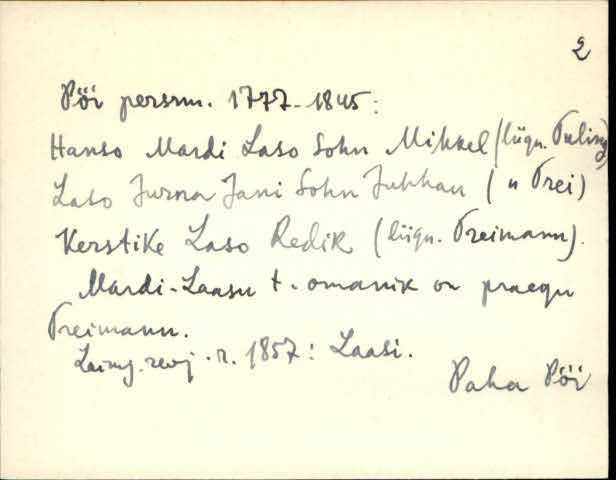 2
Pöi persrm. 1777-1845:
Hanso Mardi Laso Sohn Mihkel (liign. Tuling)
Laso Jurna Jani Sohn Juhhan ( " Trei)
Kerstike Laso Redik (liign. Treimann).
Mardi-Laasu t. omanik on praegu
Treimann.
Laimj. revj. r. 1857: Laasi.
Paha Pöi